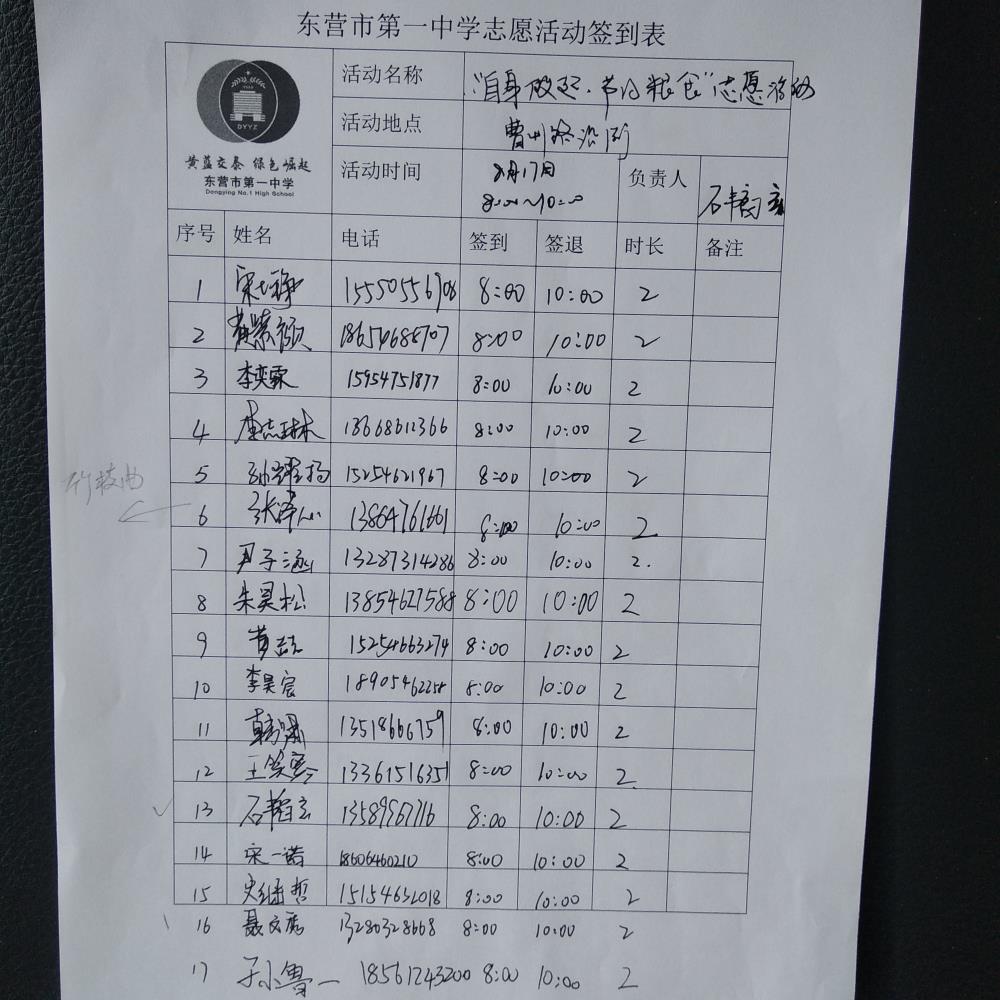 东营市第一中学志愿活动签到表
DYYZ
黄蓝交泰 绿色崛起
东营市第一中学
Dongying No.1 High School
活动名称 "自身做起、节约粮食"志愿活动
活动地点 曹州路沿街
活动时间 8月17日 8:00~10:00 负责人 石韬玄
序号 姓名 电话 签到 签退 时长 备注
1 15550556908 8:00 10:00 2
2 18654688707 8:00 10:00 2
3 李奕霖 15954751877 8:00 10:00 2
4 13668612366 8:00 10:00 2
5 孙耀扬 15254621967 8:00 10:00 2
6 张泽心 13864761661 8:00 10:00 2
7 尹子涵 13287314286 8:00 10:00 2.
8 朱昊松 13854627588 8:00 10:00 2
9 15254663274 8:00 10:00 2
10 李昊宸 18905462258 8:00 10:00 2
11 13518666759 8:00 10:00 2
12 13361516351 8:00 10:00 2
13 石韬玄 13589967716 8:00 10:00 2
14 宋一诺 18606460210 8:00 10:00 2
15 史继哲 15154631018 8:00 10:00 2
16 13280328668 8:00 10:00 2
17 于小鲁一 18561243200 8:00 10:00 2
竹枝曲